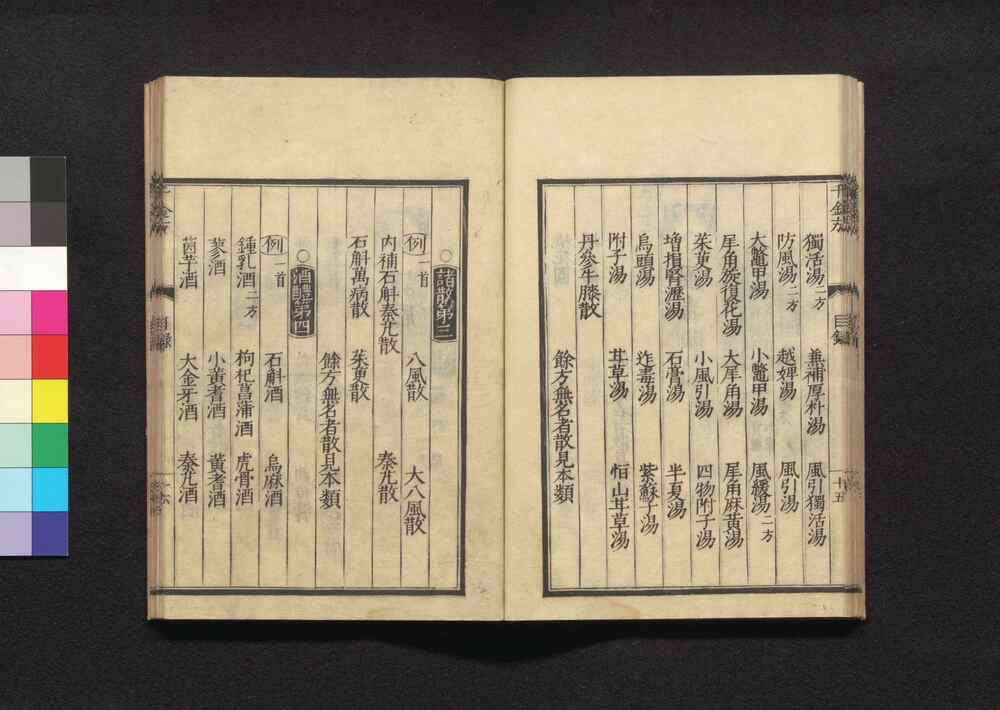 千金方 目錄 十五
獨活湯二方 兼補厚朴湯 風引獨活湯
防風湯二方 越婢湯 風引湯
大鱉甲湯 小鱉甲湯 風緩湯二方
犀角旋復花湯 大犀角湯 犀角麻黃湯
茱萸湯 小風引湯 四物附子湯
增損腎瀝湯 石膏湯 半夏湯
烏頭湯 迮毒湯 紫蘇子湯
附子湯 茸草湯 恒山茸草湯
丹參牛膝散
餘方無名者散見本類
○諸散第三
例一首 八風散 大八風散
內補石斛秦艽散
石斛萬病散 茱萸散 秦艽散
餘方無名者散見本類
○酒醴第四
例一首 石斛酒 烏麻酒
鍾乳酒二方 枸杞菖蒲酒 虎骨酒
蓼酒 小黃耆酒 黃耆酒
茵芋酒 大金牙酒 秦艽酒